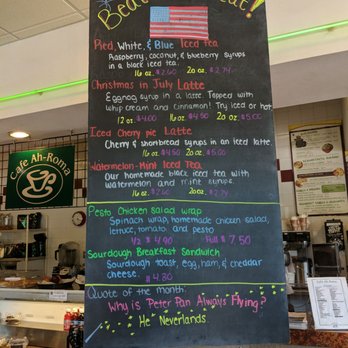 Red, White, & Blue Iced Tea
Raspberry, coconut, & blueberry syrups
in a black iced tea.
16 oz. $2.60 20 oz. $2.74
Christmas in July Latte
Eggnog syrup in a latte. Topped with
whip cream and cinnamon! Try iced or hot
12 oz. $4.00 16 oz. $4.50 20 oz. $5.00
Iced Cherry pie Latte
Cherry & shortbread syrups in an iced latte.
16 oz. $4.50 20 oz. $5.00
Watermelon-Mint Iced Tea
Our homemade black iced tea with
watermelon and mint syrups.
16 oz. $2.60 20 oz. $2.74
Pesto Chicken Salad Wrap
Spinach wrap, homemade chicken salad,
lettuce, tomato, and pesto
1/2 $4.90 Full $7.50
Sourdough Breakfast Sandwich
Sourdough toast, egg, ham, & cheddar
cheese. $4.30
Quote of the month:
Why is Peter Pan Always Flying?
He Neverlands.
Cafe Ah-Roma